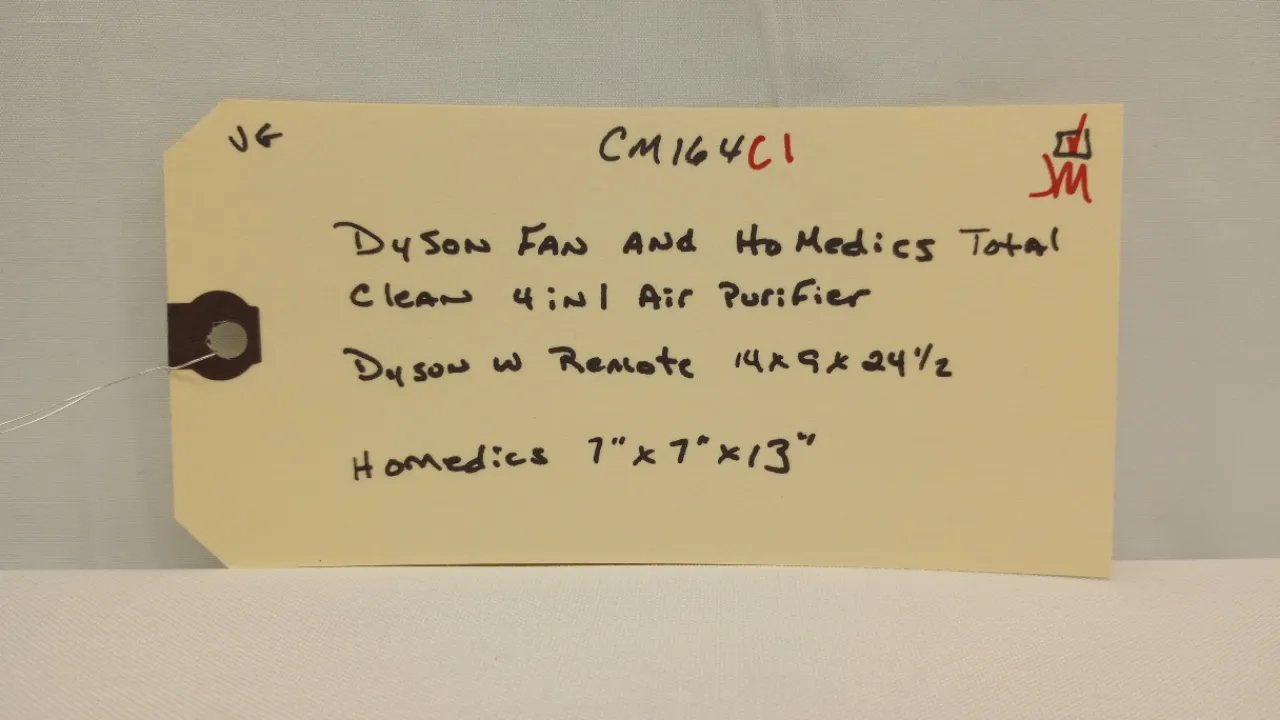 VG CM164C1
JM
Dyson Fan and HoMedics Total
Clean 4in1 Air Purifier
Dyson w Remote 14x9x24 1/2
Homedics 7"x7"x13"